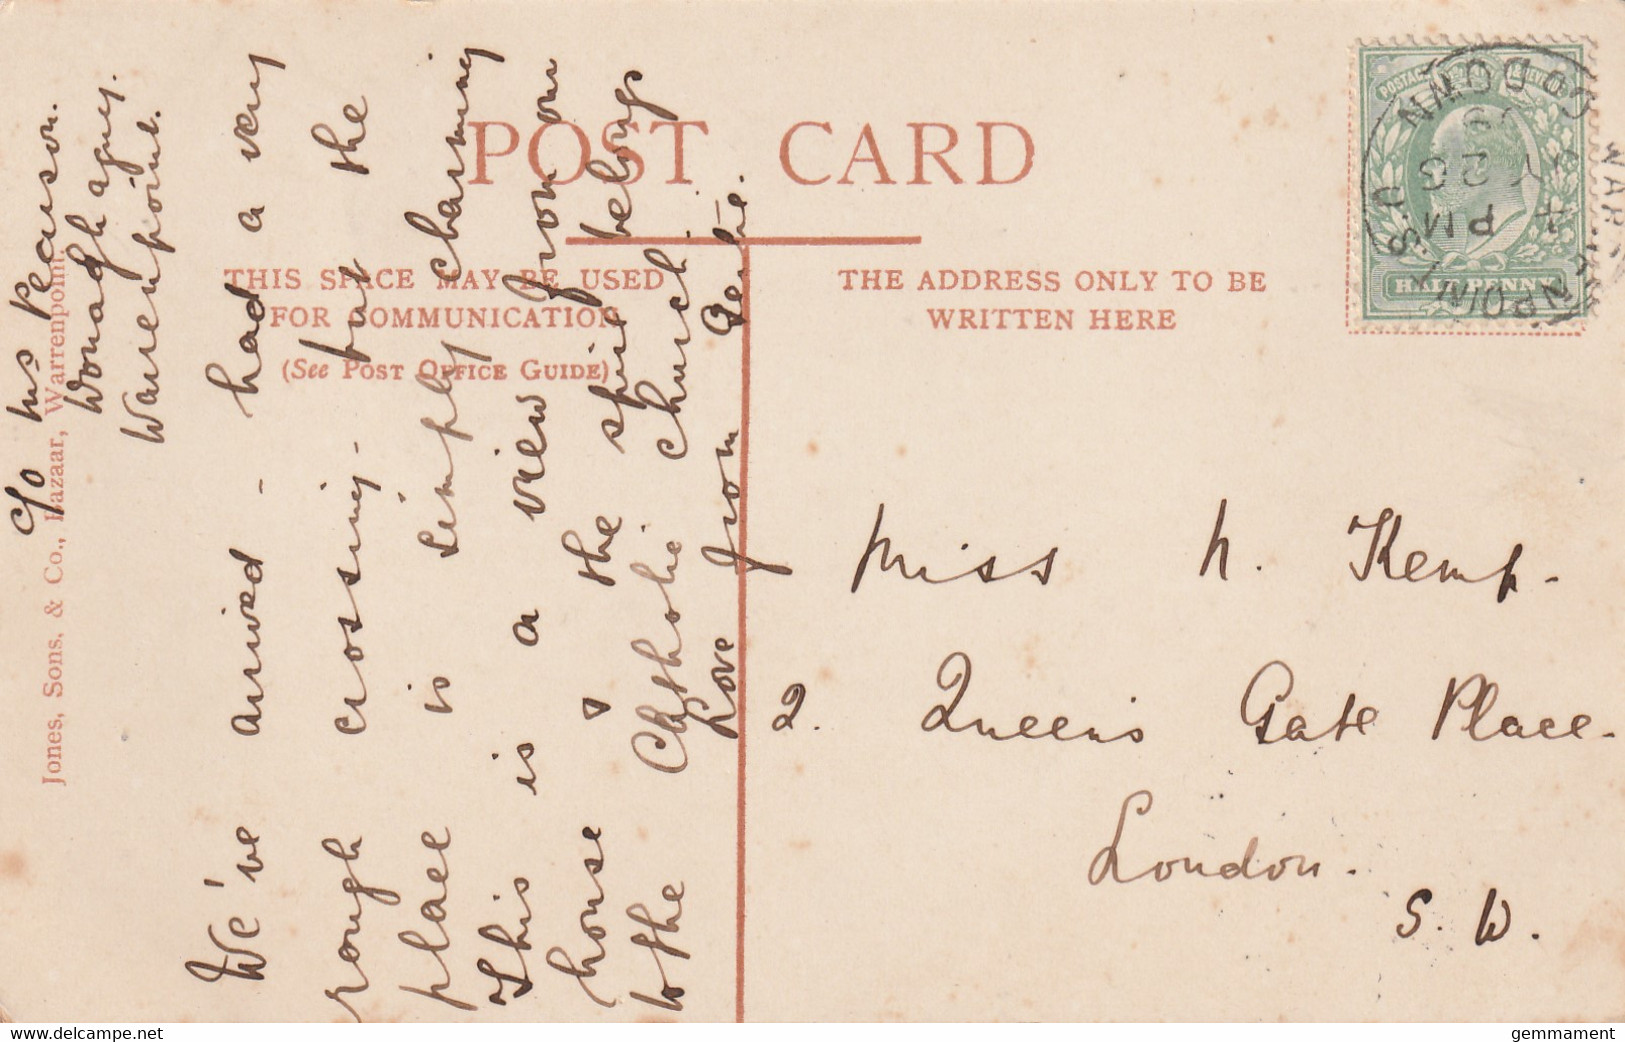 POST CARD
THIS SPACE MAY BE USED
FOR COMMUNICATION
(See POST OFFICE GUIDE)
THE ADDRESS ONLY TO BE
WRITTEN HERE
Jones, Sons, & Co., Bazaar, Warrenpoint.
c/o Mrs Pearson.
Warrenpoint.
We've arrived - had a very
rough crossing - but the
place is simply charming
This is a view from our
house & the spire belongs
to the Catholic church.
Love from
Miss N. Kemp.
2. Queen's Gate Place.
London.
S. W.
POSTAGE REVENUE
HALFPENNY
CO DOWN
PM
www.delcampe.net
gemmament